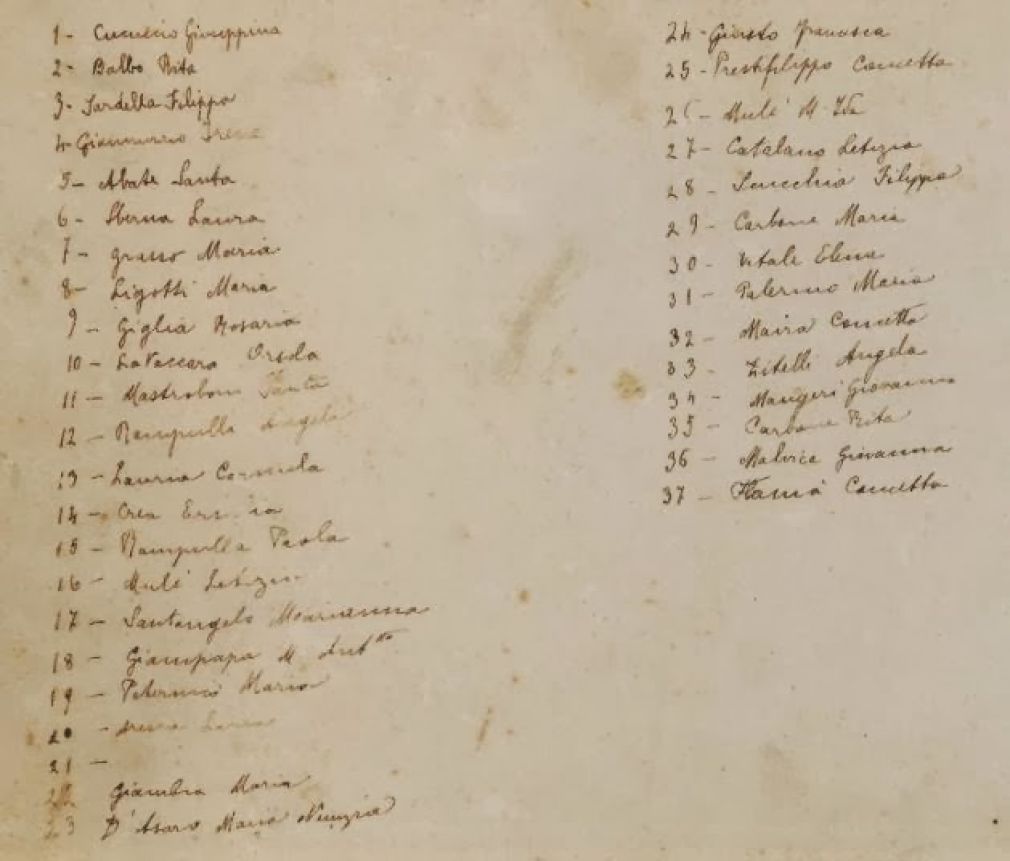 1- Giuseppina
2- Balbo Rita
3- Sardella Filippa
4- Giammusso Irene
5- Abate Santa
6- Sberna Laura
7- Grasso Maria
8- Ligotti Maria
9- Giglia Rosaria
10- La Vaccara Orsola
11- Mastroboni Santa
12- Rampulla Angela
13- Lauria Carmela
14- Crea
15- Rampulla Paola
16- Mulé Letizia
17- Santangelo Marianna
18- Giampapa M. Ant.tta
19- Maria
20-
21-
22 Giambra Maria
23 D'Asaro Maria Nunzia
24- Giusto Francesca
25- Prestifilippo Concetta
26- Mulé M. Ida
27- Catalano Letizia
28- Filippa
29- Carbone Maria
30- Vitale Elena
31- Palermo Maria
32- Maira Concetta
33- Zitelli Angela
34- Maugeri Giovanna
35- Carbone Rita
36- Malvica Giovanna
37- Flamà Concetta